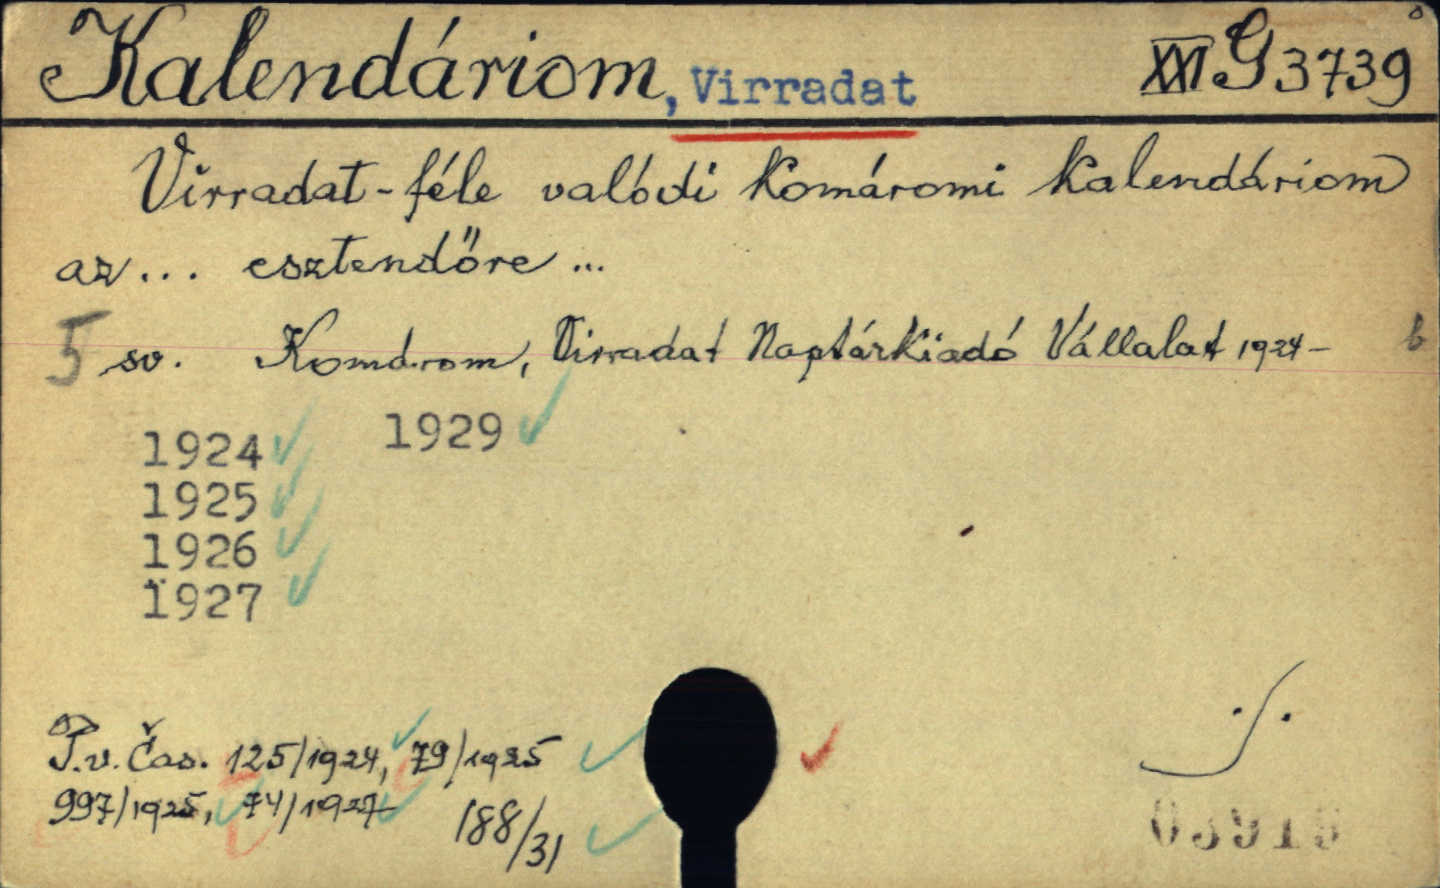 Kalendáriom, Virradat XXI G 3739
Virradat-féle valódi Komáromi Kalendáriom
az... esztendőre...
5 sv. Komárom, Virradat Naptárkiadó Vállalat 1924- b
1924 1929
1925
1926
1927
P.v. Čas. 125/1924, 79/1925
997/1925, 74/1927
188/31